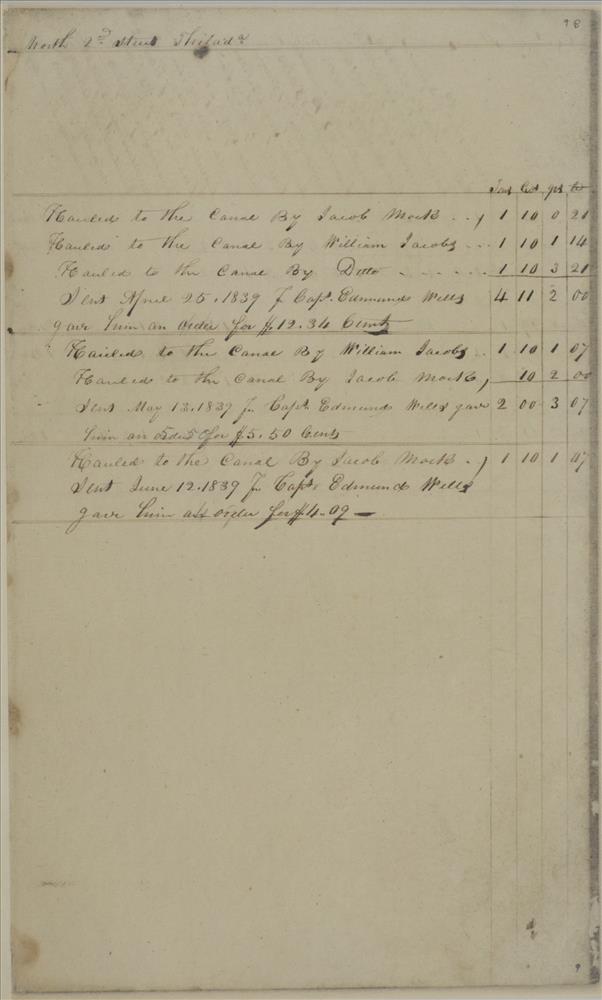 98
North 2nd Street Philada
Tons Cwt qrs lb
Hauled to the Canal By Jacob Mock . . , 1 10 0 21
Hauled to the Canal By William Jacobs . . . 1 10 1 14
Hauled to the Canal By Ditto . . . . . . 1 10 3 21
Sent April 25. 1839 Capt. Edmund Wells 4 11 2 00
gave him an order for $12.34 Cents
Hauled to the Canal By William Jacobs . . 1 10 1 07
Hauled to the Canal By Jacob Mock, 10 2 00
Sent May 13. 1839 Capt. Edmund Wells gave 2 00 3 07
him an for $5.50 Cents
Hauled to the Canal By Jacob Mock . , 1 10 1 07
Sent June 12. 1839 Capt. Edmund Wells
gave him an order for $4.09 —